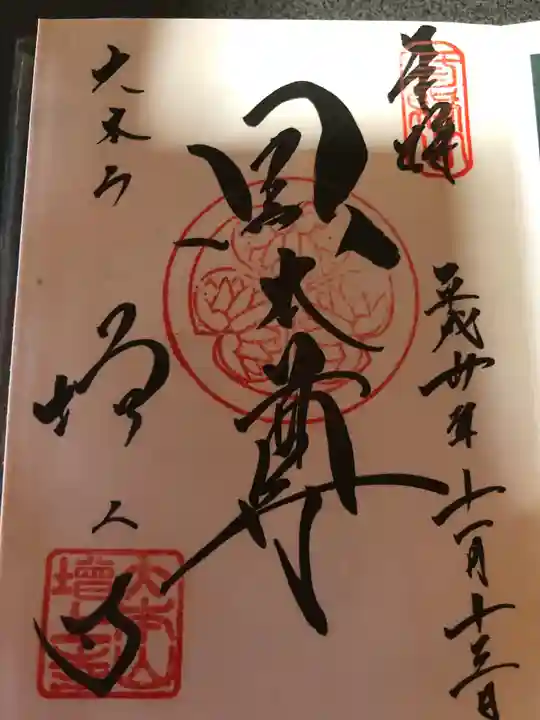 奉拝
平成廿年十一月十三日
黒本尊
大本山
増上寺
大本山
増上寺